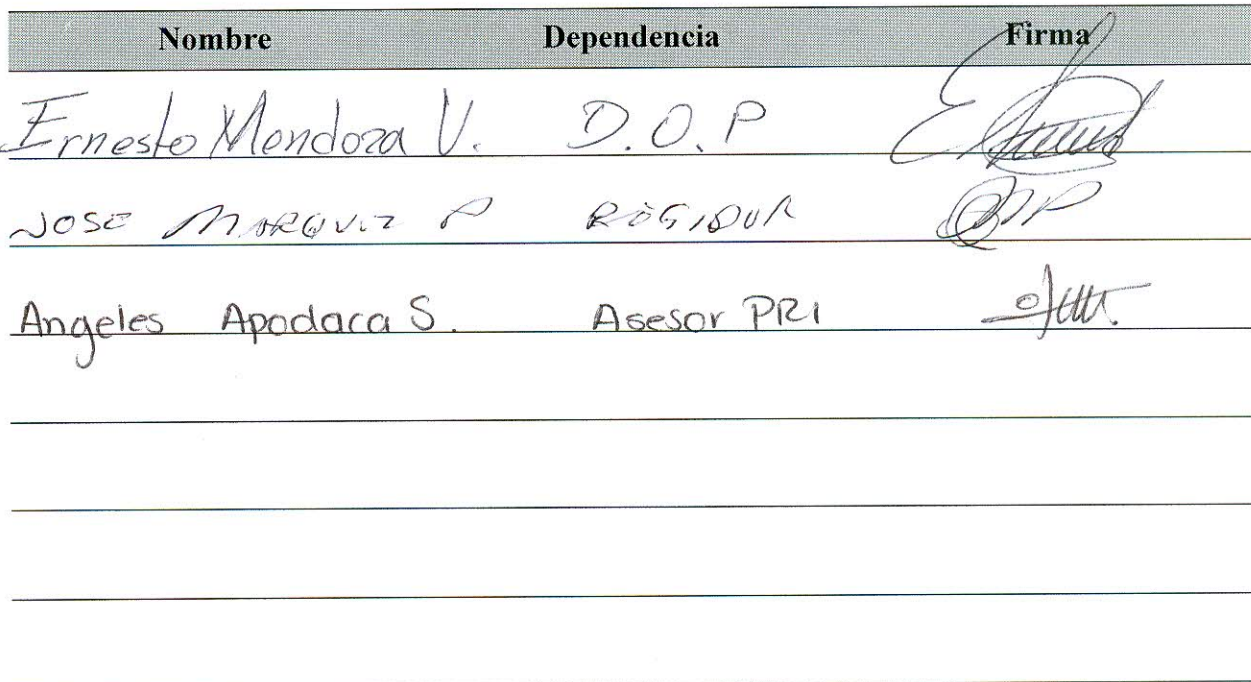 Nombre Dependencia Firma
Ernesto Mendoza V. D.O.P
JOSE MARQUEZ P REGIDOR
Angeles Apodaca S. Asesor PRI